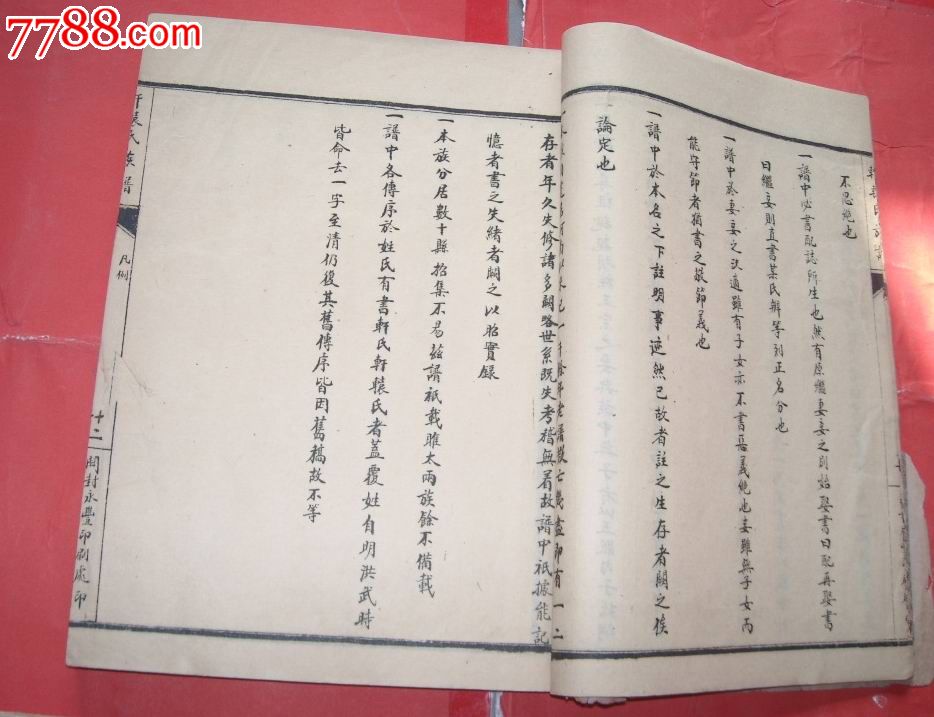 7788.com
不忍絶也
一譜中必書配誌所生也然有原繼妻妾之別始娶書曰配再娶書
曰繼妾則直書某氏辨等列正名分也
一譜中於妻妾之決適雖有子女亦不書惡義絶也妾雖無子女而
能守節者猶書之敬節義也
一譜中於本名之下註明事迹然已故者註之生存者闕之俟
論定也
存者年久失修諸多闕略世系既失考稽無着故譜中祇據能記
憶者書之失緒者闕之以昭實録
一本族分居數十縣招集不易兹譜祇載睢太兩族餘不備載
一譜中各傳序於姓氏有書軒氏軒轅氏者蓋覆姓自明洪武時
皆命去一字至清仍復其舊傳序皆因舊稿故不等
軒轅氏族譜
凡例
十二
開封永豐印刷處印